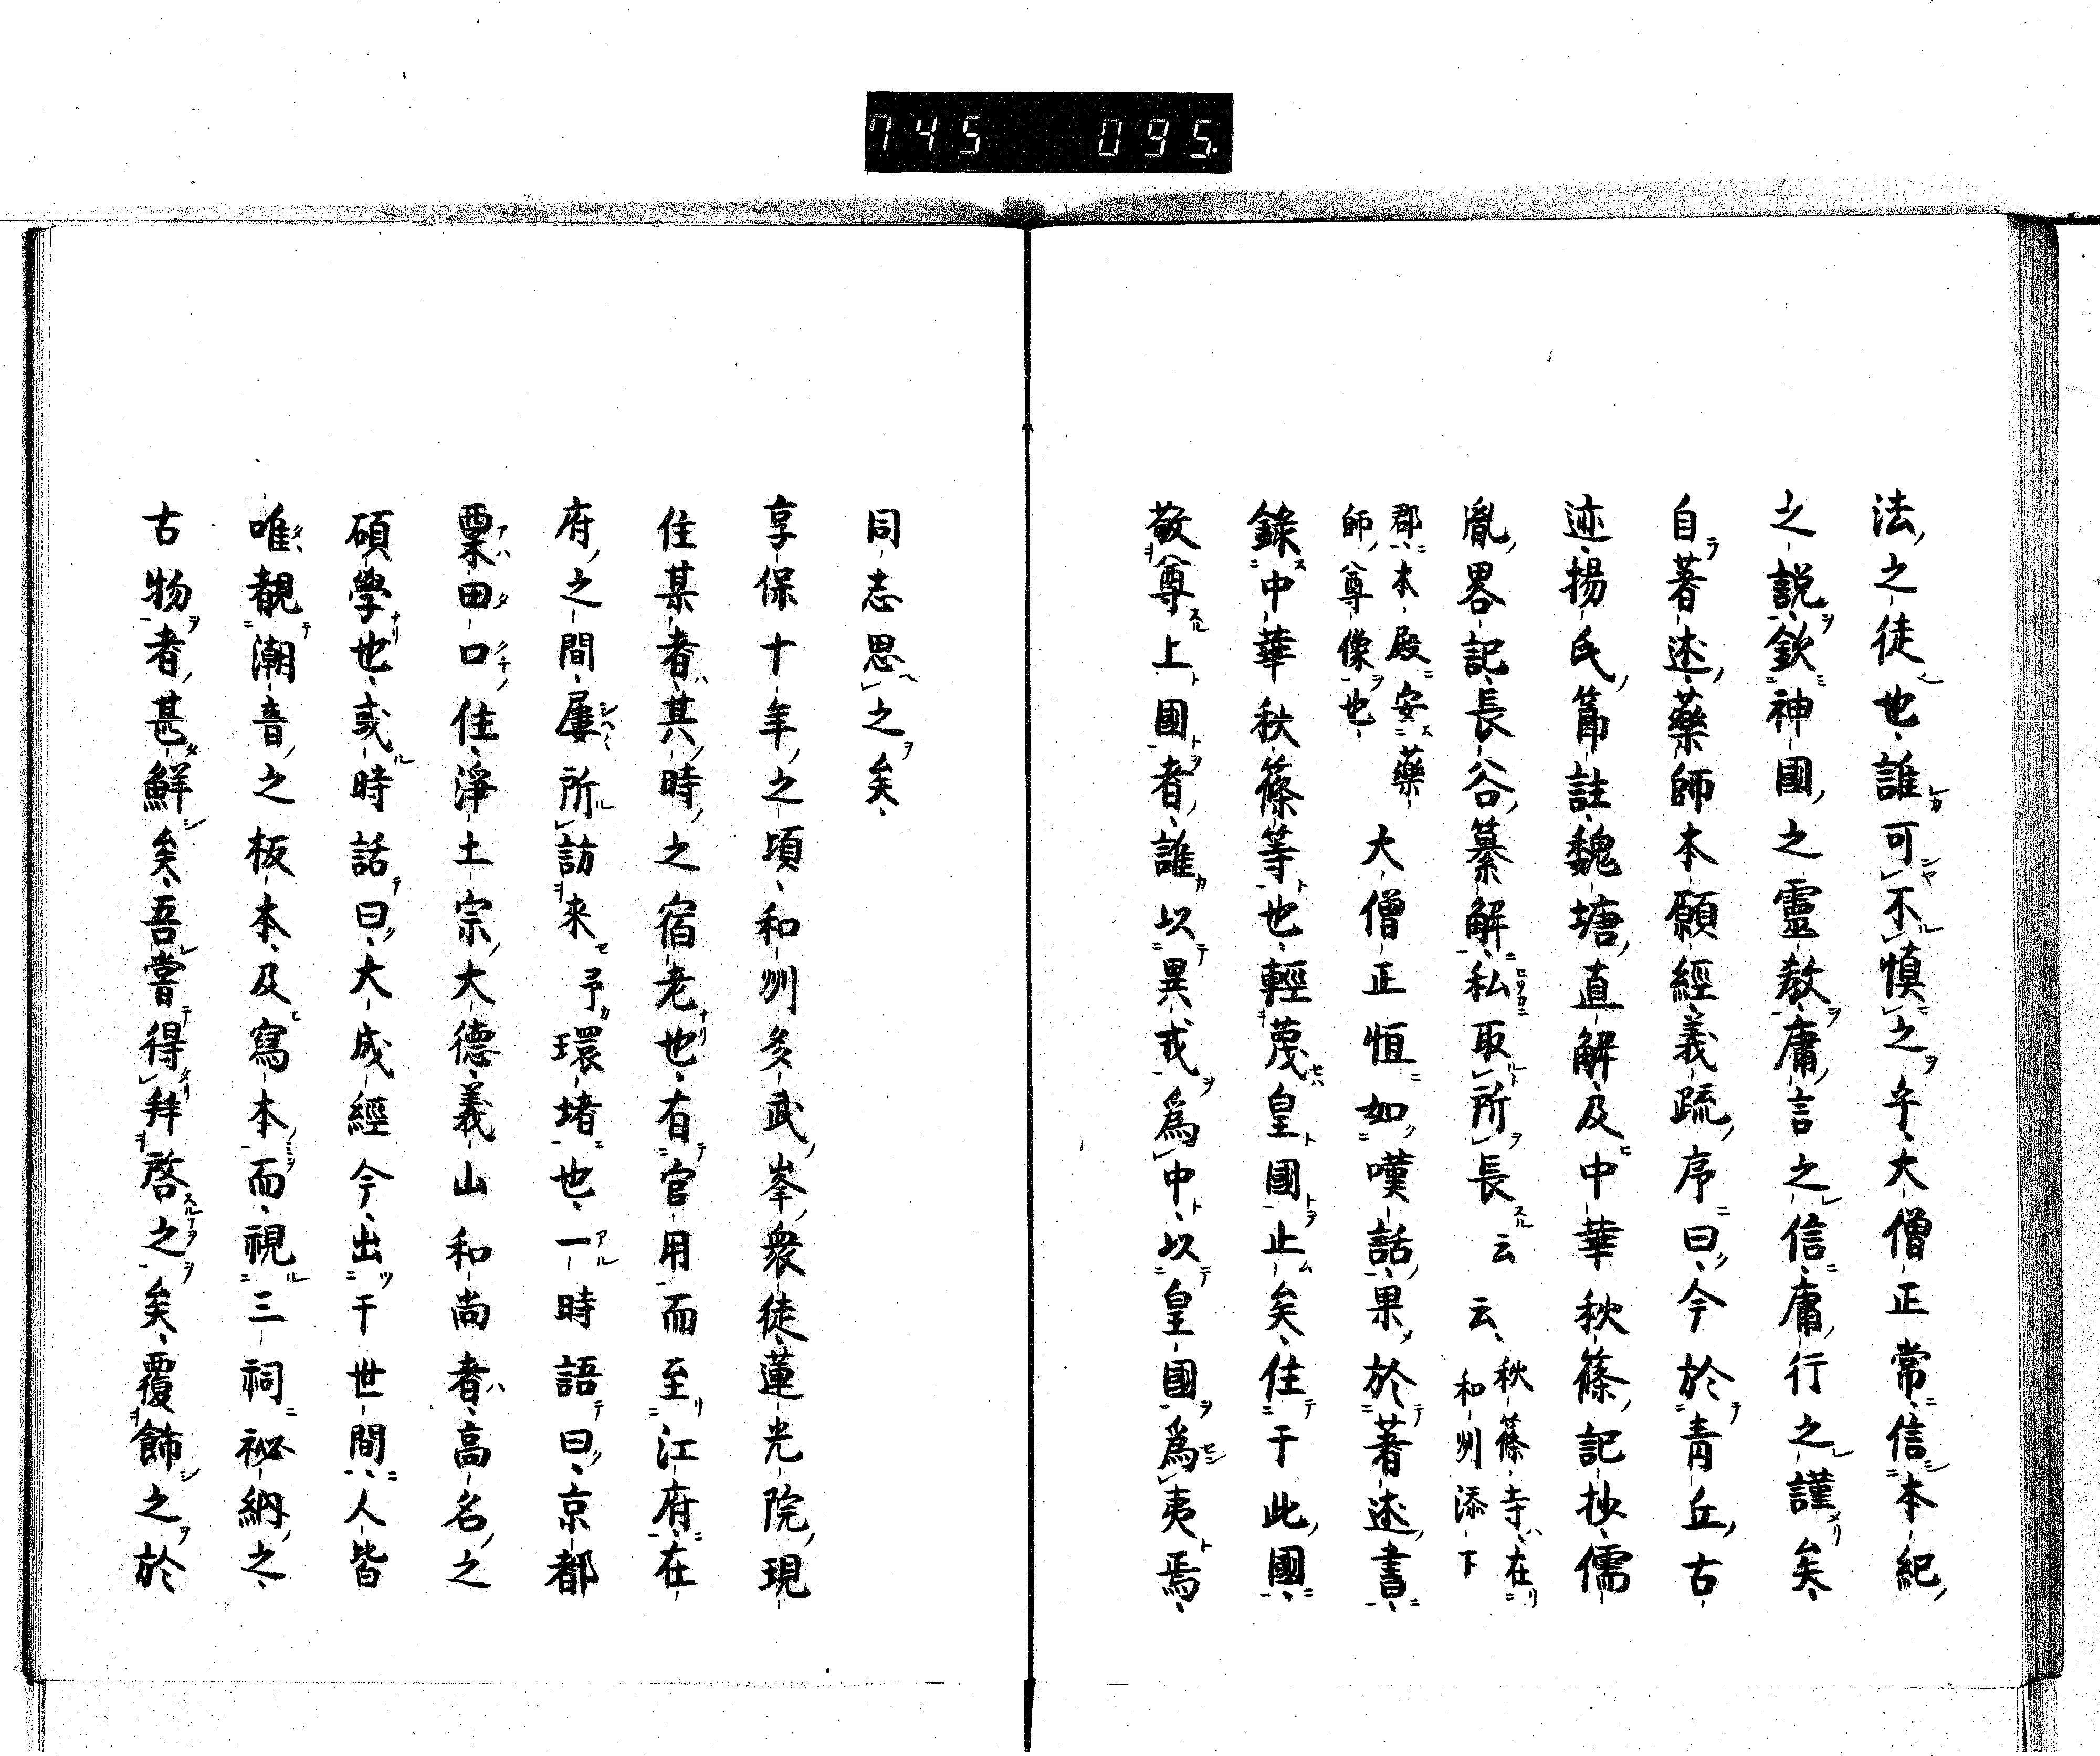 745 095.
法之徒也誰可不慎之乎大僧正常信本紀
之説欽神國之靈敎庸言之信庸行之謹矣
自著述藥師本願經義疏序曰今於青丘古
迹揚氏箾註魏塘直解及中華秋篠記抄儒
胤畧記長谷纂解私取所長云云秋篠寺在
和州添下
郡本殿安藥
師尊像也大僧正恒如嘆話果於著述書
錄中華秋篠等也輕蔑皇國止矣住于此國
敬尊上國者誰以異戎爲中以皇國爲夷焉
同志思之矣
享保十年之頃和州多武峯衆徒蓮光院現
住某者其時之宿老也有官用而至江府在
府之間屢所訪來予環堵也一時語曰京都
粟田口住淨土宗大德義山和尚者高名之
碩學也或時話曰大成經今出于世間人皆
唯覩潮音之板本及寫本而視三祠祕納之
古物者甚鮮矣吾嘗得拜啓之矣覆飾之於